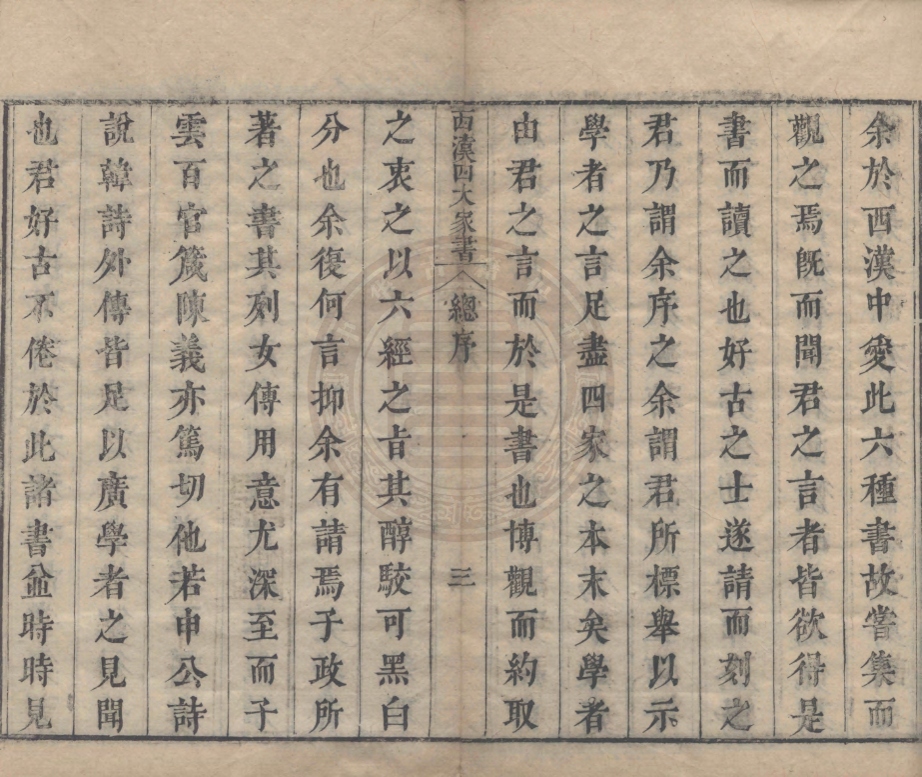 余於西漢中愛此六種書故嘗集而
觀之焉旣而聞君之言者皆欲得是
書而讀之也好古之士遂請而刻之
君乃謂余序之余謂君所標舉以示
學者之言足盡四家之本末矣學者
由君之言而於是書也博觀而約取
西漢四大家書 總序 三
之衷之以六經之旨其醇駁可黑白
分也余復何言抑余有請焉子政所
著之書其列女傳用意尤深至而子
雲百官箴陳義亦篤切他若申公詩
說韓詩外傳皆足以廣學者之見聞
也君好古不倦於此諸書益時時見